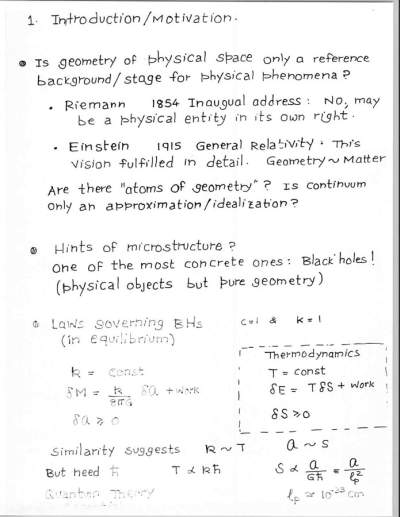 1. Introduction/Motivation.
• Is geometry of physical space only a reference
background/stage for physical phenomena?
• Riemann 1854 Inaugural address: No, may
be a physical entity in its own right.
• Einstein 1915 General Relativity. This
vision fulfilled in detail. Geometry ~ Matter
Are there "atoms of geometry"? Is continuum
only an approximation/idealization?
• Hints of microstructure?
One of the most concrete ones: Black holes!
(physical objects but pure geometry)
• Laws governing BHs
(in equilibrium)
c=1 & k=1
k = const
δM = k/8πG δa + work
δa ≥ 0
Thermodynamics
T = const
δE = TδS + work
δS ≥ 0
Similarity suggests k ~ T a ~ S
But need ħ T ∝ kħ S ∝ a/Għ = a/ℓp²
Quantum Theory ℓp ≈ 10⁻³³ cm